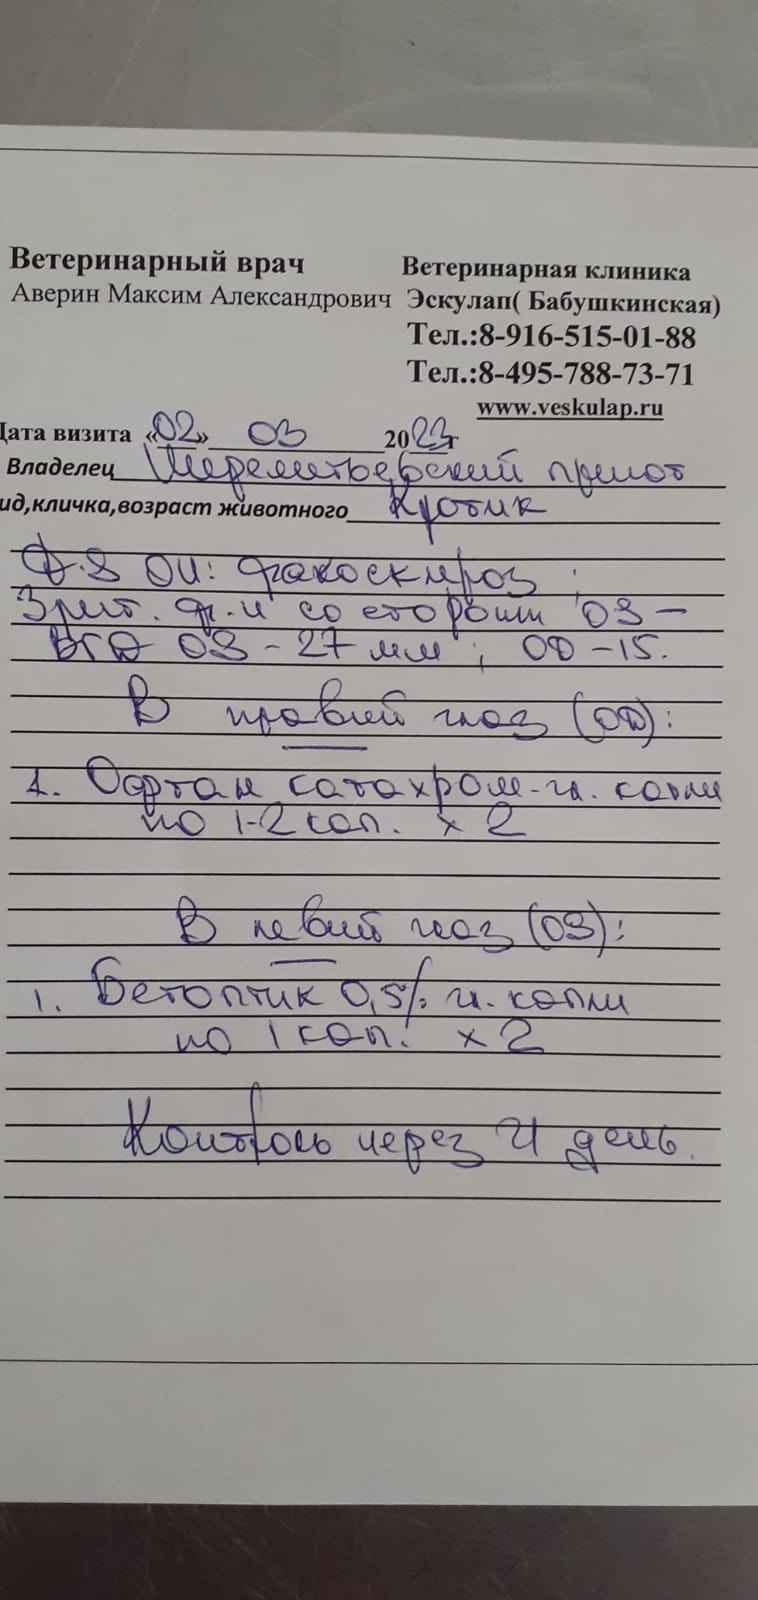 Ветеринарный врач
Аверин Максим Александрович
Ветеринарная клиника
Эскулап( Бабушкинская)
Тел.:8-916-515-01-88
Тел.:8-495-788-73-71
www.veskulap.ru
Дата визита «02» 03 2023г
Владелец Шереметьевский приют
ид,кличка,возраст животного Кротик
D.S OU: факосклероз ;
Зрит. ф-и со стороны OS –
ВГД OS - 27 мм ; OD - 15.
В правый глаз (OD):
1. Офтан катахром - гл. капли
по 1-2 кап. x 2
В левый глаз (OS):
1. Бетоптик 0,5% гл. капли
по 1 кап. x 2
Контроль через 21 день.